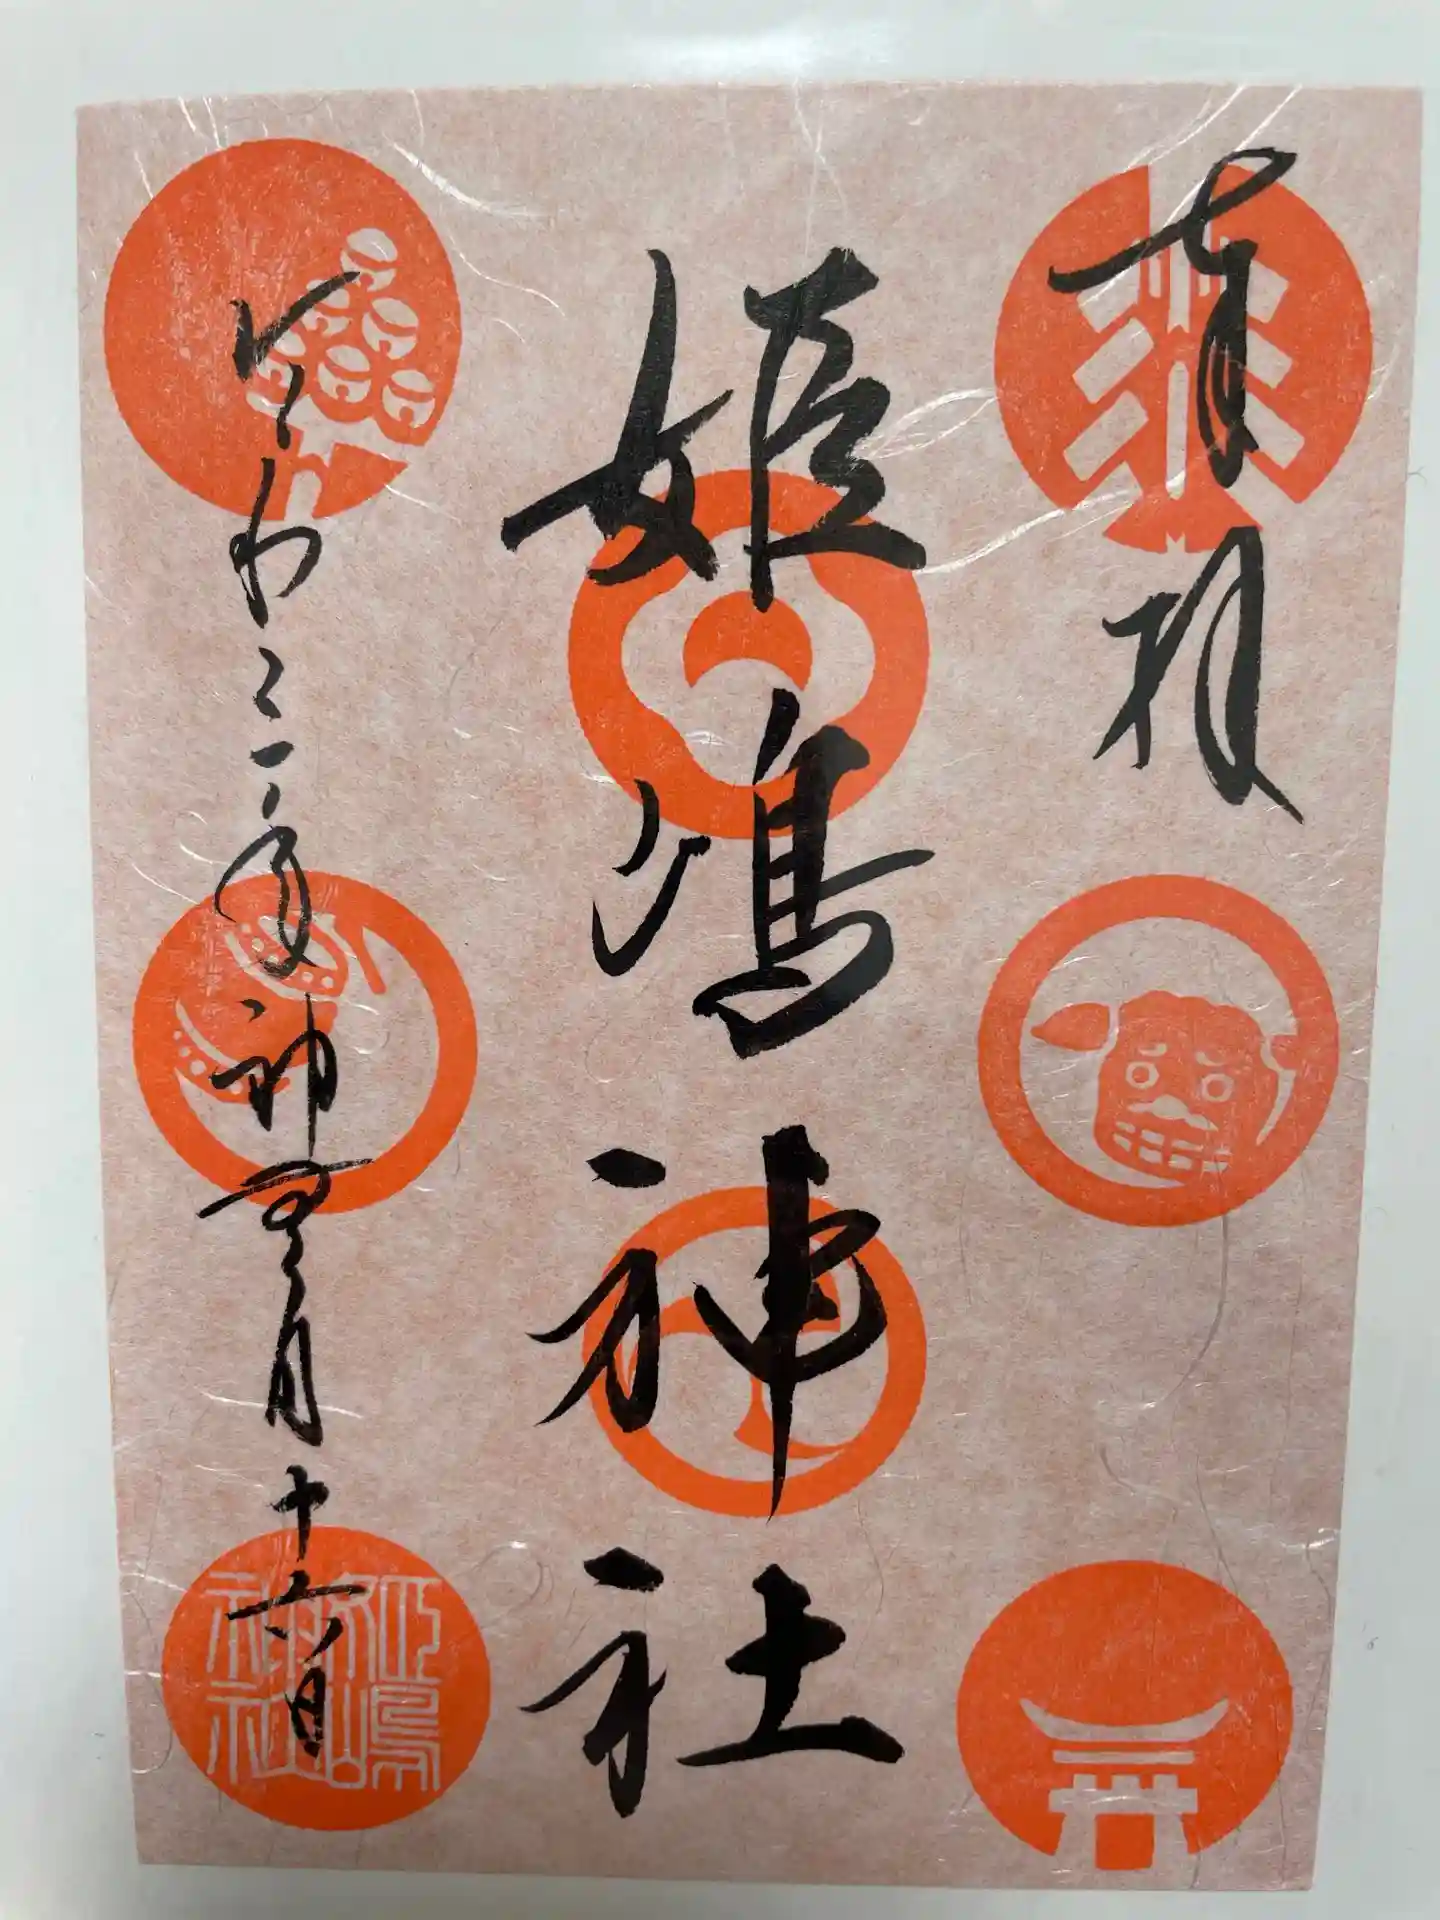 奉拝
姫嶋神社
令和三年神無月十六日
姫嶋
神社